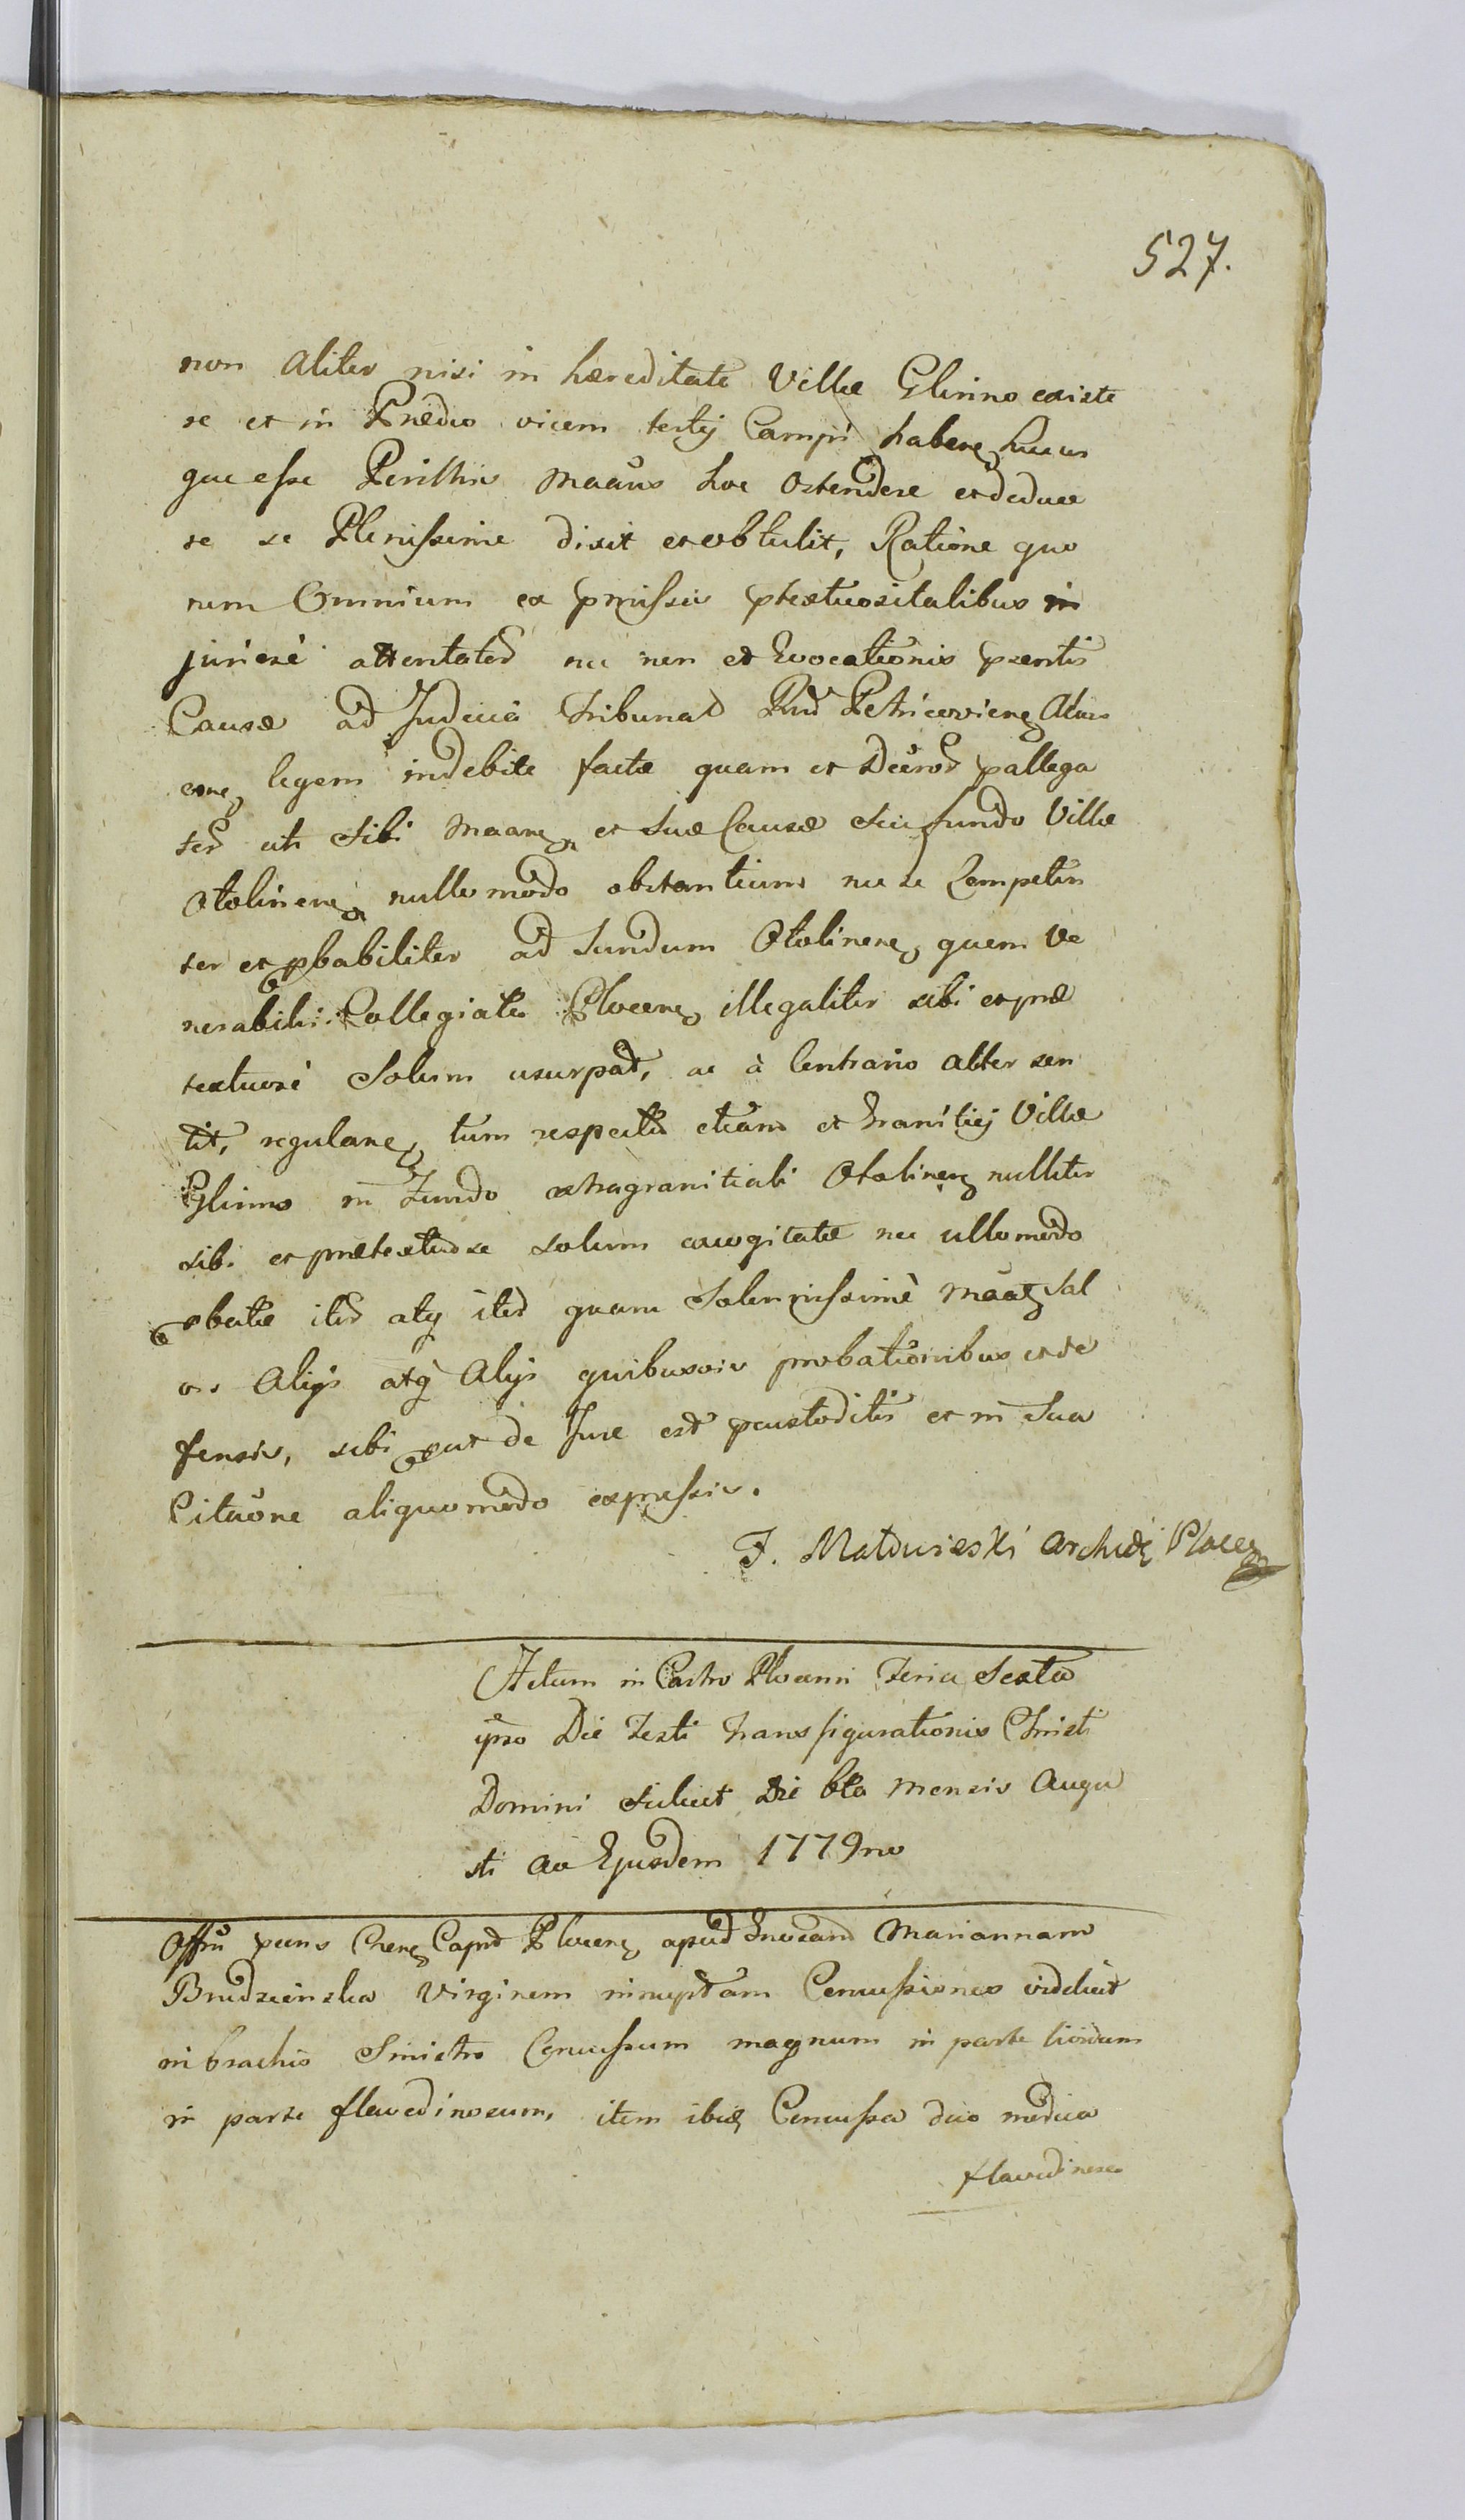 527.
non Aliter nisi in hæreditate Villæ Glinno existe
re et in Prædio vicem tertij Campi habere, hucus
que esse Perillris Maãns hoc Ostendere et deduce
re se Plenissime dixit et obtulit, Ratione quo
rum Omnium ex pmissis ptextuositatibus in
juriose attentator nec non et Evocationis pntis
Causæ ad Judicia Tribunal Rnd Petricoviens
legem indebite factæ quam et pallega
uti Sibi et Suæ Causæ Seu fundo Villæ
Otolinens nullo modo obstantium nec se Competen
ter et pbabiliter ad fundum Otolinens, quem Ve
nerabilis Collegiate Plocens illegaliter sibi et præ
textuose Solum usurpat, ac à Contrario aliter sen
tit, regulare, tum respectu etiam et Granitiej Villæ
Glinno in Fundo extragranitiali Otolinens nulliter
sibi et prætextuose solum excogitatæ nec ullo modo
pbatæ iter atq iter quam Solennissimè Maatz Sal
vis Alijs atq Alijs quibusvis probationibus et de
fensis, sibi put de Jure est pcustoditis et in Sua
Citatione aliquo modo expressis.
F. Matdurieski Archidz Plocen
Actum in Castro Plocenn Feria Sexta
ipso Die Festi Transfigurationis Christi
Domini Scilicet Die 6ta Mensis Augu
sti Ao Ejusdem 1779no
Offm pns Crens Capnd Plocens apud Gnosam Mariannam
Brudzienska Virginem innuptam Concussiones videlicet
in brachio Sinistro Concussum magnum in parte lividum
in parte flavedinosum, item ibid Concussa duo modica
flavedinosa